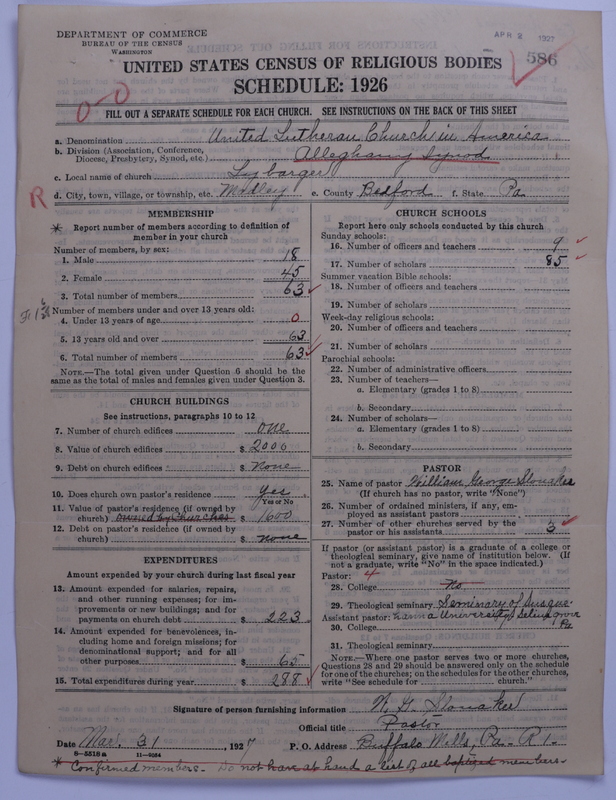 DEPARTMENT OF COMMERCE
BUREAU OF THE CENSUS
WASHINGTON
APR 2 1927
586
UNITED STATES CENSUS OF RELIGIOUS BODIES
SCHEDULE: 1926
0-0
FILL OUT A SEPARATE SCHEDULE FOR EACH CHURCH. SEE INSTRUCTIONS ON THE BACK OF THIS SHEET
a. Denomination United Lutheran Church in America
b. Division (Association, Conference, Diocese, Presbytery, Synod, etc.) Alleghany Synod
c. Local name of church Lybarger
R
d. City, town, village, or township, etc. Madley e. County Bedford f. State Pa
MEMBERSHIP
* Report number of members according to definition of member in your church
Number of members, by sex:
1. Male 18
2. Female 45
3. Total number of members 63
Number of members under and over 13 years old:
4. Under 13 years of age 0
5. 13 years old and over 63
6. Total number of members 63
NOTE.—The total given under Question 6 should be the
same as the total of males and females given under Question 3.
CHURCH BUILDINGS
See instructions, paragraphs 10 to 12
7. Number of church edifices one
8. Value of church edifices $ 2000
9. Debt on church edifices $ None
10. Does church own pastor's residence yes
Yes or No
11. Value of pastor's residence (if owned by
church) owned by 4 churches $ 1600
12. Debt on pastor's residence (if owned by
church) $ none
EXPENDITURES
Amount expended by your church during last fiscal year
13. Amount expended for salaries, repairs,
and other running expenses; for im-
provements or new buildings; and for
payments on church debt $ 223
14. Amount expended for benevolences, in-
cluding home and foreign missions; for
denominational support; and for all
other purposes $ 65
15. Total expenditures during year $ 288
CHURCH SCHOOLS
Report here only schools conducted by this church
Sunday schools:
16. Number of officers and teachers 9
17. Number of scholars 85
Summer vacation Bible schools:
18. Number of officers and teachers
19. Number of scholars
Week-day religious schools:
20. Number of officers and teachers
21. Number of scholars
Parochial schools:
22. Number of administrative officers
23. Number of teachers—
a. Elementary (grades 1 to 8)
b. Secondary
24. Number of scholars—
a. Elementary (grades 1 to 8)
b. Secondary
PASTOR
25. Name of pastor William George Slonaker
(If church has no pastor, write "None")
26. Number of ordained ministers, if any, em-
ployed as assistant pastors
27. Number of other churches served by the
pastor or his assistants 3
If pastor (or assistant pastor) is a graduate of a college or
theological seminary, give name of institution below. (If
not a graduate, write "No" in the space indicated.)
Pastor: 4
28. College No
29. Theological seminary Seminary of Susque-
Assistant pastor: hanna University Selinsgrove
30. College Pa
31. Theological seminary
NOTE.—Where one pastor serves two or more churches,
Questions 28 and 29 should be answered only on the schedule
for one of the churches; on the schedules for the other churches,
write "See schedule for church."
Signature of person furnishing information W. G. Slonaker
Official title Pastor
Date Mar. 31, 1927 P. O. Address Buffalo Mills, Pa. R 1.
8—5518a 11—9034
* Confirmed members. Do not have at hand a list of all baptized members.